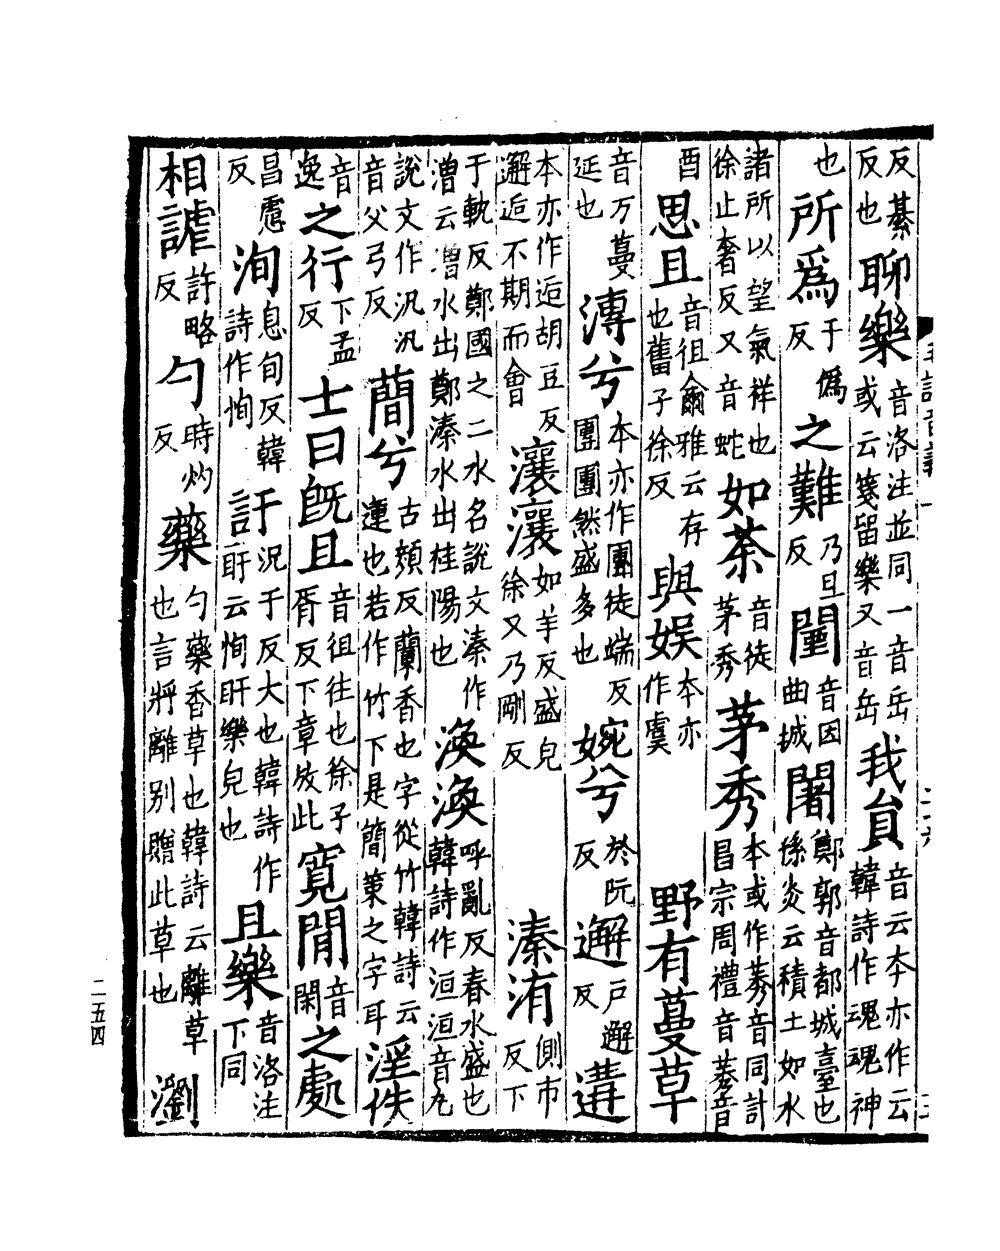 反綦
反也
聊樂
音洛注並同一音岳
或云箋留樂又音岳
我員
音云本亦作云
韓詩作魂魂神
也
所爲
于僞
反
之難
乃旦
反
闉
音因
曲城
闍
鄭郭音都城臺也
孫炎云積土如水
諸所以望氣祥也
徐止奢反又音蛇
如荼
音徒
茅秀
茅秀
本或作莠音同計
昌宗周禮音莠音
酉
思且
音徂爾雅云存
也舊子徐反
與娱
本亦
作虞
野有蔓草
音万蔓
延也
漙兮
本亦作團徒端反
團團然盛多也
婉兮
於阮
反
邂
戶邂
反
遘
本亦作逅胡豆反
邂逅不期而會
瀼瀼
如羊反盛皃
徐又乃剛反
溱洧
側巾
反下
于軌反鄭國之二水名說文溱作
潧云潧水出鄭溱水出桂陽也
渙渙
呼亂反春水盛也
韓詩作洹洹音丸
說文作汎汎
音父弓反
蕑兮
古顏反蘭香也字從竹韓詩云
蓮也若作竹下是簡策之字耳
淫佚
音
逸
之行
下孟
反
士曰既且
音徂往也徐子
胥反下章放此
寬閒
音
閑
之處
昌慮
反
洵
息旬反韓
詩作恂
訏
況于反大也韓詩作
盱云恂盱樂皃也
且樂
音洛注
下同
相謔
許略
反
勺
時灼
反
藥
勺藥香草也韓詩云離草
也言將離別贈此草也
瀏
二五四